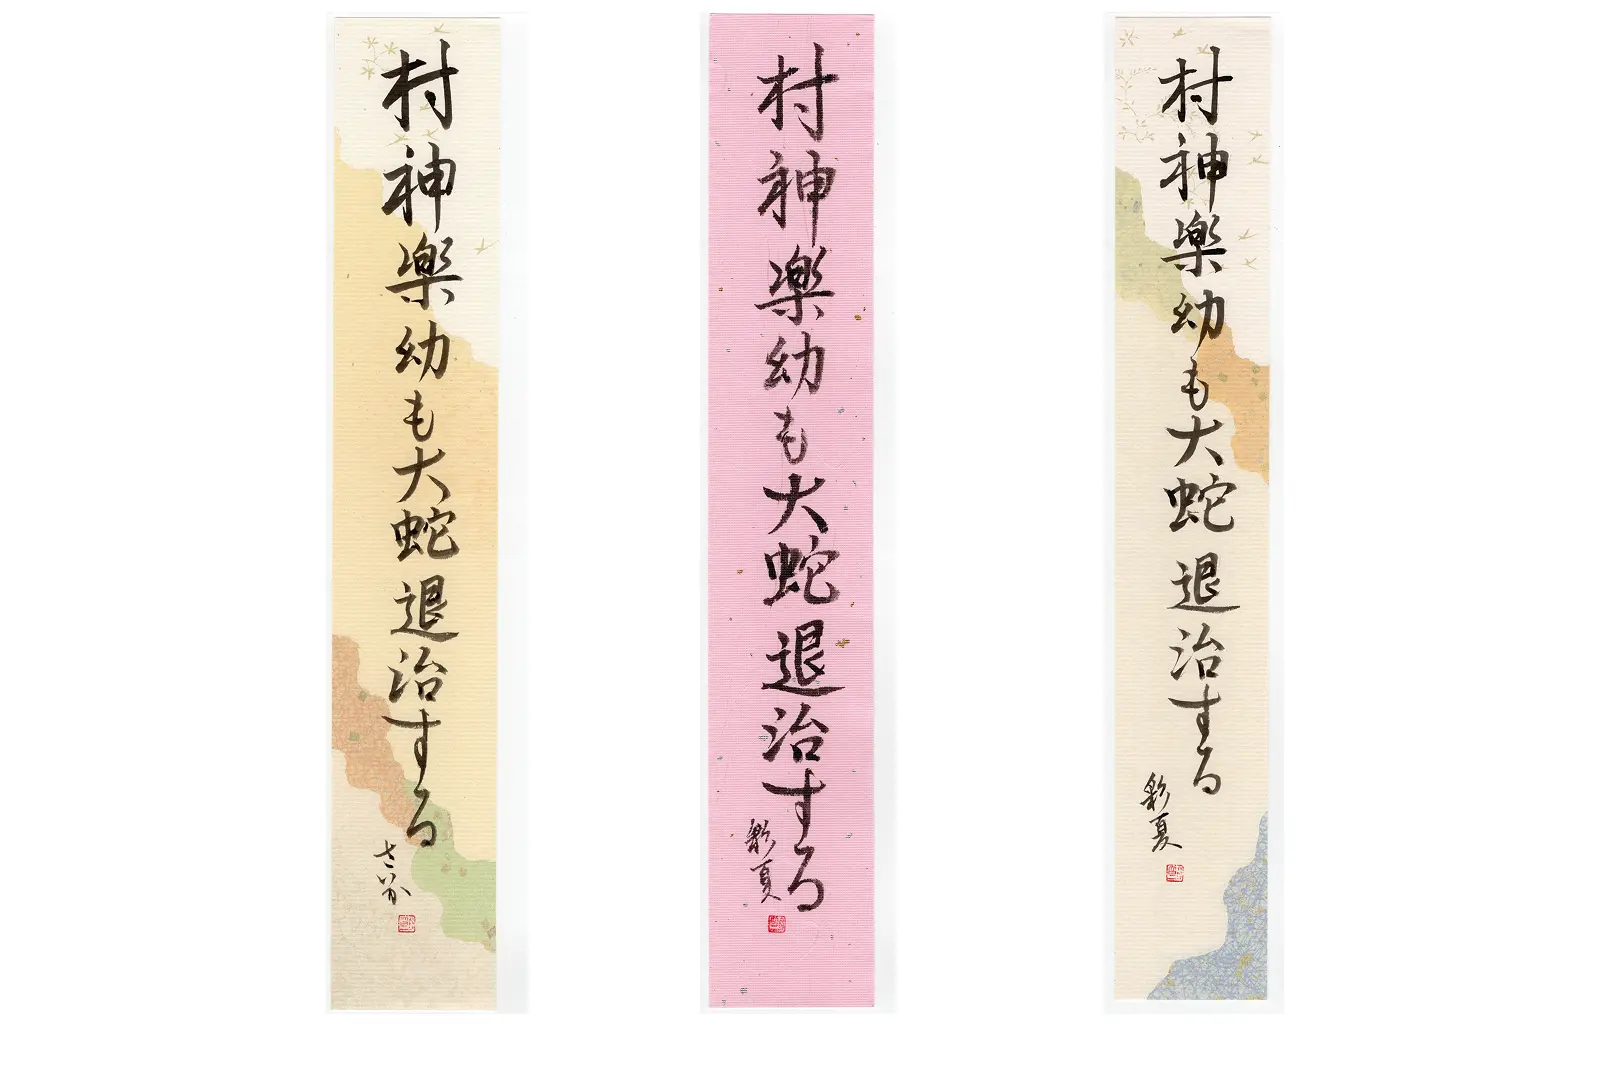 村神楽幼も大蛇退治する
さいか
村神楽幼も大蛇退治する
彩夏
村神楽幼も大蛇退治する
彩夏